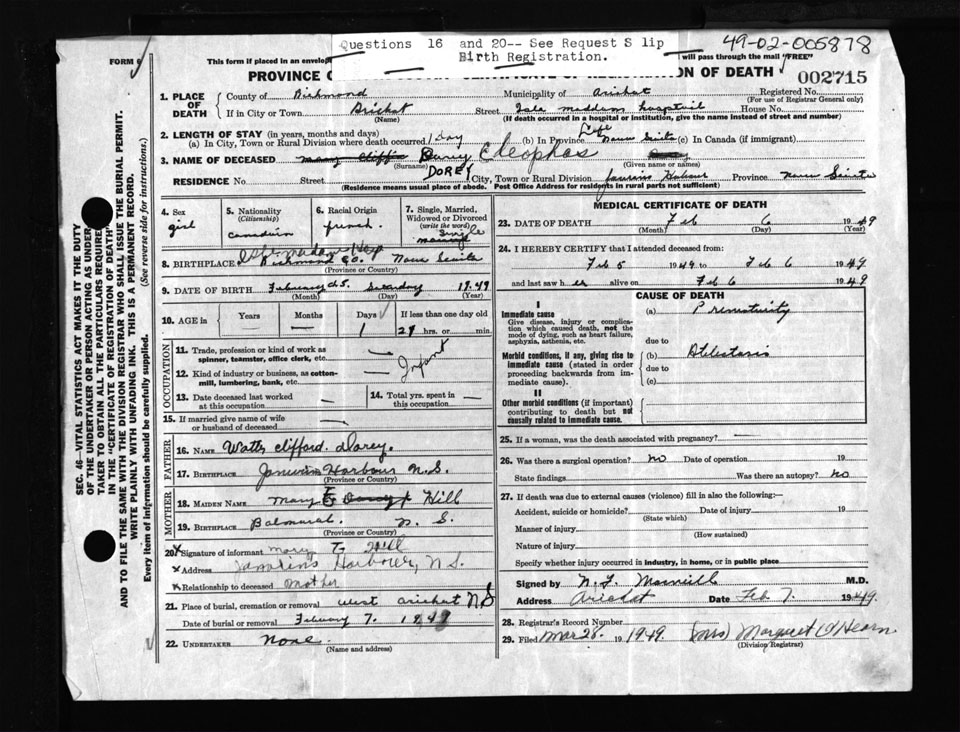 Questions 16 and 20-- See Request S lip
Birth Registration.
49-02-005878
FORM 6 This form if found in an envelop will pass through the mail "FREE"
PROVINCE OF REGISTRATION OF DEATH 002715
1. PLACE OF DEATH County of Richmond Municipality of Arichat Registered No.
(For use of Registrar General only)
If in City or Town Arichat Street Isle Madame hospital House No.
(Name) (If death occurred in a hospital or institution, give the name instead of street and number)
2. LENGTH OF STAY (in years, months and days)
(a) In City, Town or Rural Division where death occurred 1 day (b) In Province Life Nova Scotia (c) In Canada (if immigrant)
3. NAME OF DECEASED Mary Cleophas
(Surname) (Given name or names)
DOREY
RESIDENCE No Street City, Town or Rural Division Janvrins Harbour Province Nova Scotia
(Residence means usual place of abode. Post Office Address for residents in rural parts not sufficient)
4. Sex girl
5. Nationality (Citizenship) Canadian
6. Racial Origin french.
7. Single, Married, Widowed or Divorced (write the word) Single
8. BIRTHPLACE Isle Madame Hosp Richmond Co. Nova Scotia
(Province or Country)
9. DATE OF BIRTH February 5. Saturday 1949
(Month) (Day) (Year)
10. AGE in Years Months Days If less than one day old
1 29 hrs. or min.
OCCUPATION
11. Trade, profession or kind of work as spinner, teamster, office clerk, etc. Infant
12. Kind of industry or business, as cotton-mill, lumbering, bank, etc.
13. Date deceased last worked at this occupation
14. Total yrs. spent in this occupation
15. If married give name of wife or husband of deceased
FATHER
16. NAME Watts Clifford Dorey.
17. BIRTHPLACE Janvrin Harbour N.S.
(Province or Country)
MOTHER
18. MAIDEN NAME Mary Hill
19. BIRTHPLACE Balmoral. N. S.
(Province or Country)
20. Signature of informant Mary T. Hill
Address Janvrins Harbour, N.S.
Relationship to deceased Mother
21. Place of burial, cremation or removal West Arichat N.S
Date of burial or removal February 7. 1949
22. UNDERTAKER None.
(Name and address)
MEDICAL CERTIFICATE OF DEATH
23. DATE OF DEATH Feb 6 1949
(Month) (Day)
24. I HEREBY CERTIFY that I attended deceased from:
Feb 5 1949 to Feb 6 1949
and last saw h er alive on Feb 6 1949
CAUSE OF DEATH
I
Immediate cause
Give disease, injury or complication which caused death, not the mode of dying, such as heart failure, asphyxia, asthenia, etc.
(a) Prematurity
due to
Morbid conditions, if any, giving rise to immediate cause (stated in order proceeding backwards from immediate cause).
(b) Atelectasis
due to
(c)
II
Other morbid conditions (if important) contributing to death but not causally related to immediate cause.
25. If a woman, was the death associated with pregnancy?
26. Was there a surgical operation? no Date of operation 19
State findings Was there an autopsy? no
27. If death was due to external causes (violence) fill in also the following:—
Accident, suicide or homicide? Date of injury 19
(State which)
Manner of injury
(How sustained)
Nature of injury
Specify whether injury occurred in industry, in home, or in public place
Signed by M.D.
Address Arichat Date Feb 7. 1949.
28. Registrar's Record Number
29. Filed Mar 28. 1949. (Mrs) Margaret O'Hearn
(Division Registrar)
SEC. 46—VITAL STATISTICS ACT MAKES IT THE DUTY
OF THE UNDERTAKER OR PERSON ACTING AS UNDER-
TAKER TO OBTAIN ALL THE PARTICULARS REQUIRED
IN THE "CERTIFICATE OF REGISTRATION OF DEATH"
AND TO FILE THE SAME WITH THE DIVISION REGISTRAR WHO SHALL ISSUE THE BURIAL PERMIT.
WRITE PLAINLY WITH UNFADING INK. THIS IS A PERMANENT RECORD.
Every item of information should be carefully supplied. (See reverse side for instructions.)